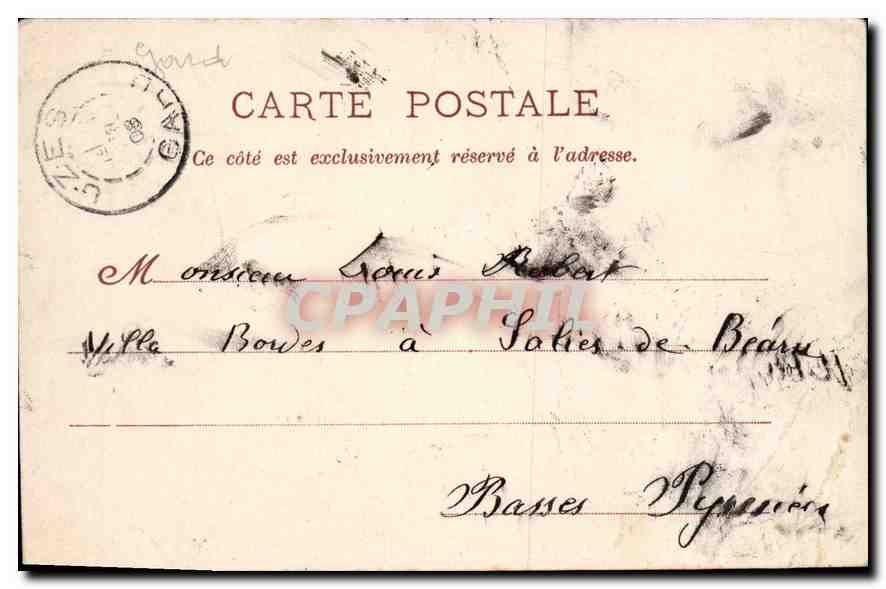 Gard
UZES
GARD
CARTE POSTALE
Ce côté est exclusivement réservé à l'adresse.
Monsieur Louis Robert
CPAPHIL
Villa Bordes à Salies-de Béarn
Basses Pyrénées